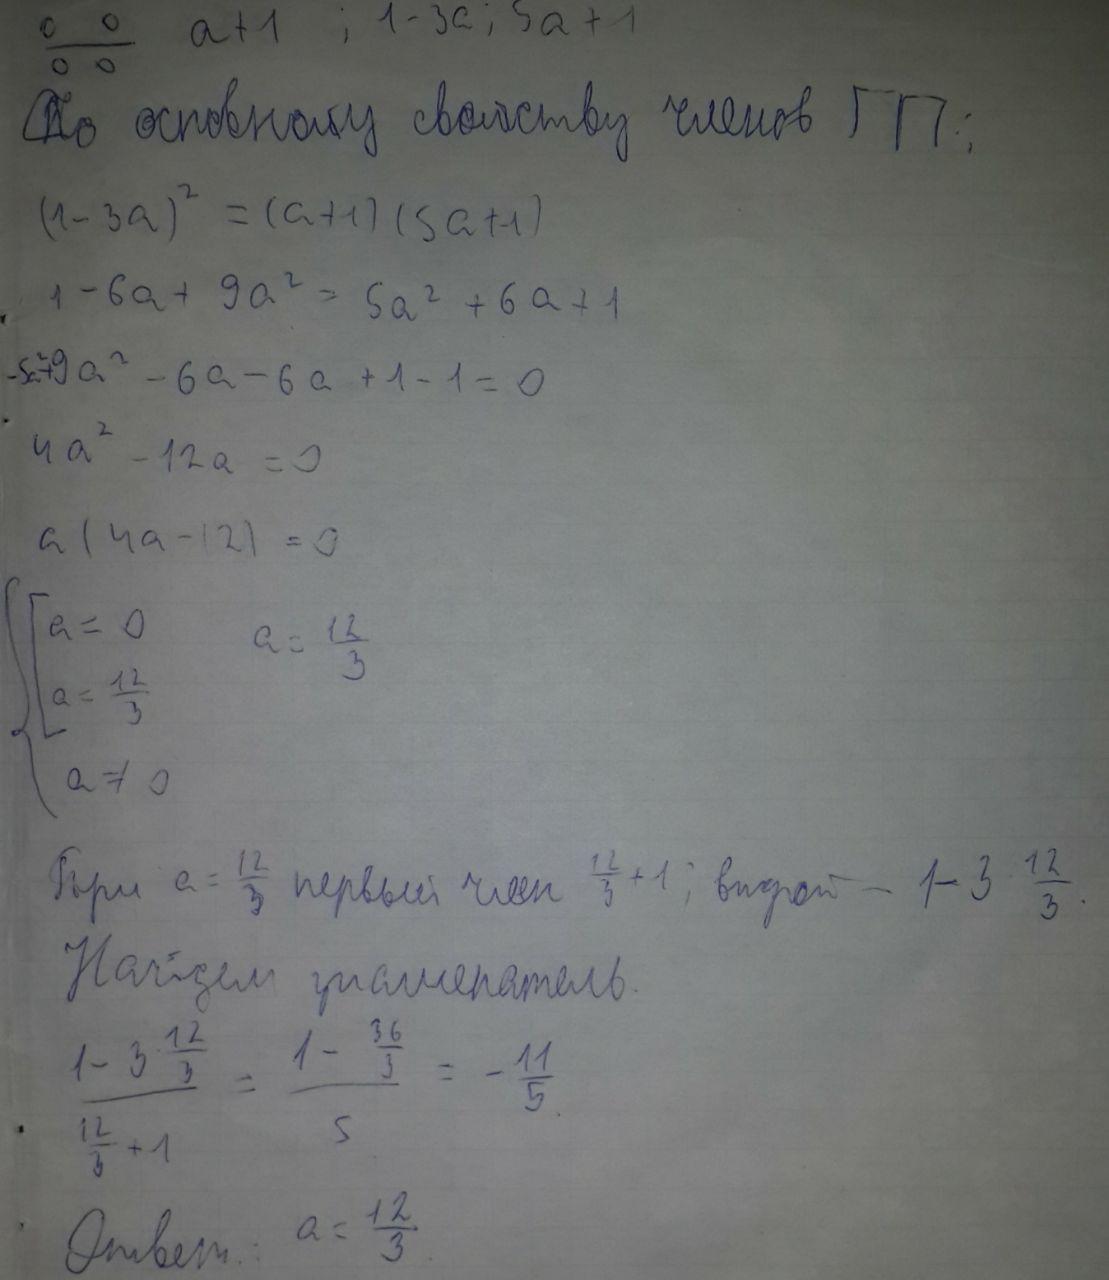 a+1 ; 1-3a; 5a+1
По основному свойству членов ГП:
(1-3a)² = (a+1)(5a+1)
1-6a+9a² = 5a²+6a+1
-5a²+9a²-6a-6a+1-1=0
4a²-12a=0
a(4a-12)=0
a=0 a=12/3
a=12/3
a≠0
При a=12/3 первый член 12/3+1; второй - 1-3·12/3.
Найдем знаменатель.
(1-3·12/3)/(12/3+1) = (1-36/3)/5 = -11/5.
Ответ: a=12/3.